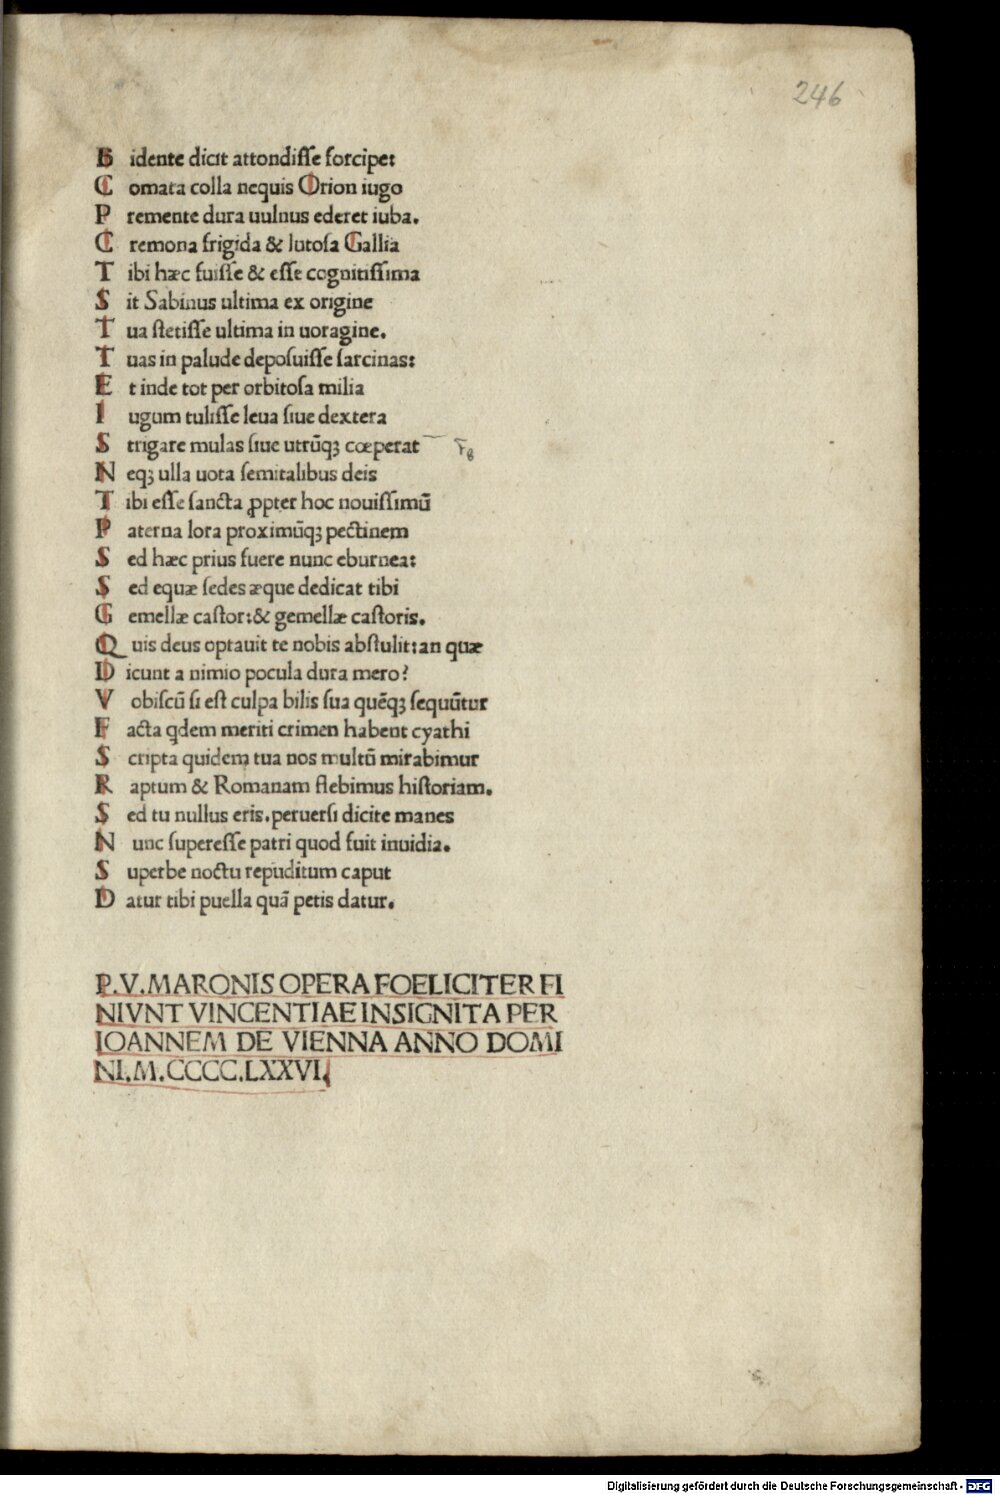 246
B idente dicit attondiſſe forcipe:
C omata colla nequis Orion iugo
P remente dura uulnus ederet iuba.
C remona frigida & lutoſa Gallia
T ibi hæc fuiſſe & eſſe cognitiſſima
S it Sabinus ultima ex origine
T ua ſtetiſſe ultima in uoragine.
T uas in palude depoſuiſſe ſarcinas:
E t inde tot per orbitoſa milia
I ugum tuliſſe leua ſiue dextera
S trigare mulas ſiue utrūqꝫ cœperat
N eqꝫ ulla uota ſemitalibus deis
T ibi eſſe ſancta ꝓpter hoc nouiſſimū
P aterna lora proximūqꝫ pectinem
S ed hæc prius fuere nunc eburnea:
S ed equæ ſedes æque dedicat tibi
G emellæ caſtor:& gemellæ caſtoris.
Q uis deus optauit te nobis abſtulit:an quæ
D icunt a nimio pocula dura mero?
V obiſcū ſi eſt culpa bilis ſua quēqꝫ ſequūtur
F acta qdem meriti crimen habent cyathi
S cripta quidem tua nos multū mirabimur
R aptum & Romanam flebimus hiſtoriam.
S ed tu nullus eris.peruerſi dicite manes
N unc ſupereſſe patri quod fuit inuidia.
S uperbe noctu repuditum caput
D atur tibi puella quā petis datur.
P.V.MARONIS OPERA FOELICITER FI
NIVNT VINCENTIAE INSIGNITA PER
IOANNEM DE VIENNA ANNO DOMI
NI.M.CCCC.LXXVI.
Digitalisierung gefördert durch die Deutsche Forschungsgemeinschaft - DFG